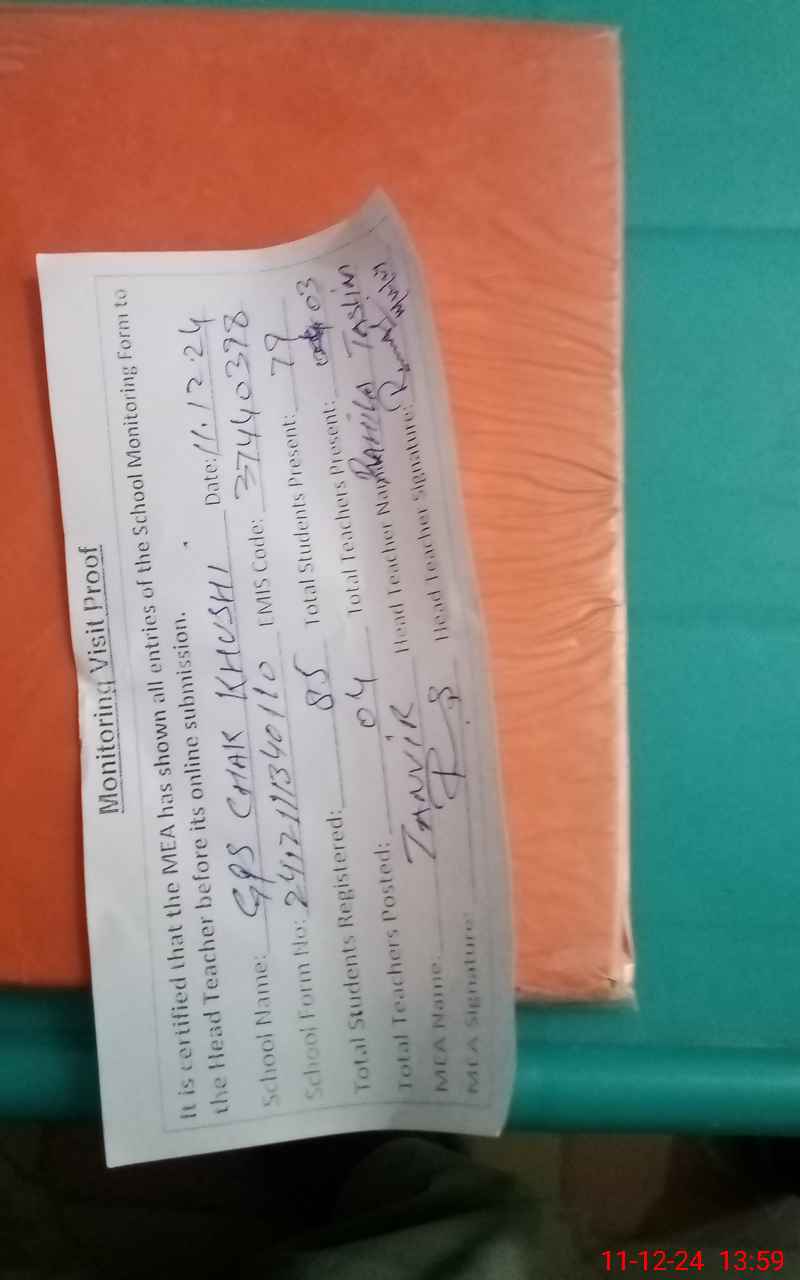 Monitoring Visit Proof
It is certified that the MEA has shown all entries of the School Monitoring Form to
the Head Teacher before its online submission.
School Name: GPS CHAK KHUSHI Date: 11.12.24
School Form No: EMIS Code: 37440398
Total Students Registered: 85 Total Students Present: 79
Total Teachers Posted: 04 Total Teachers Present: 03
MEA Name: TANVIR Head Teacher Name: Taslim
MEA Signature: Head Teacher Signature:
11-12-24 13:59